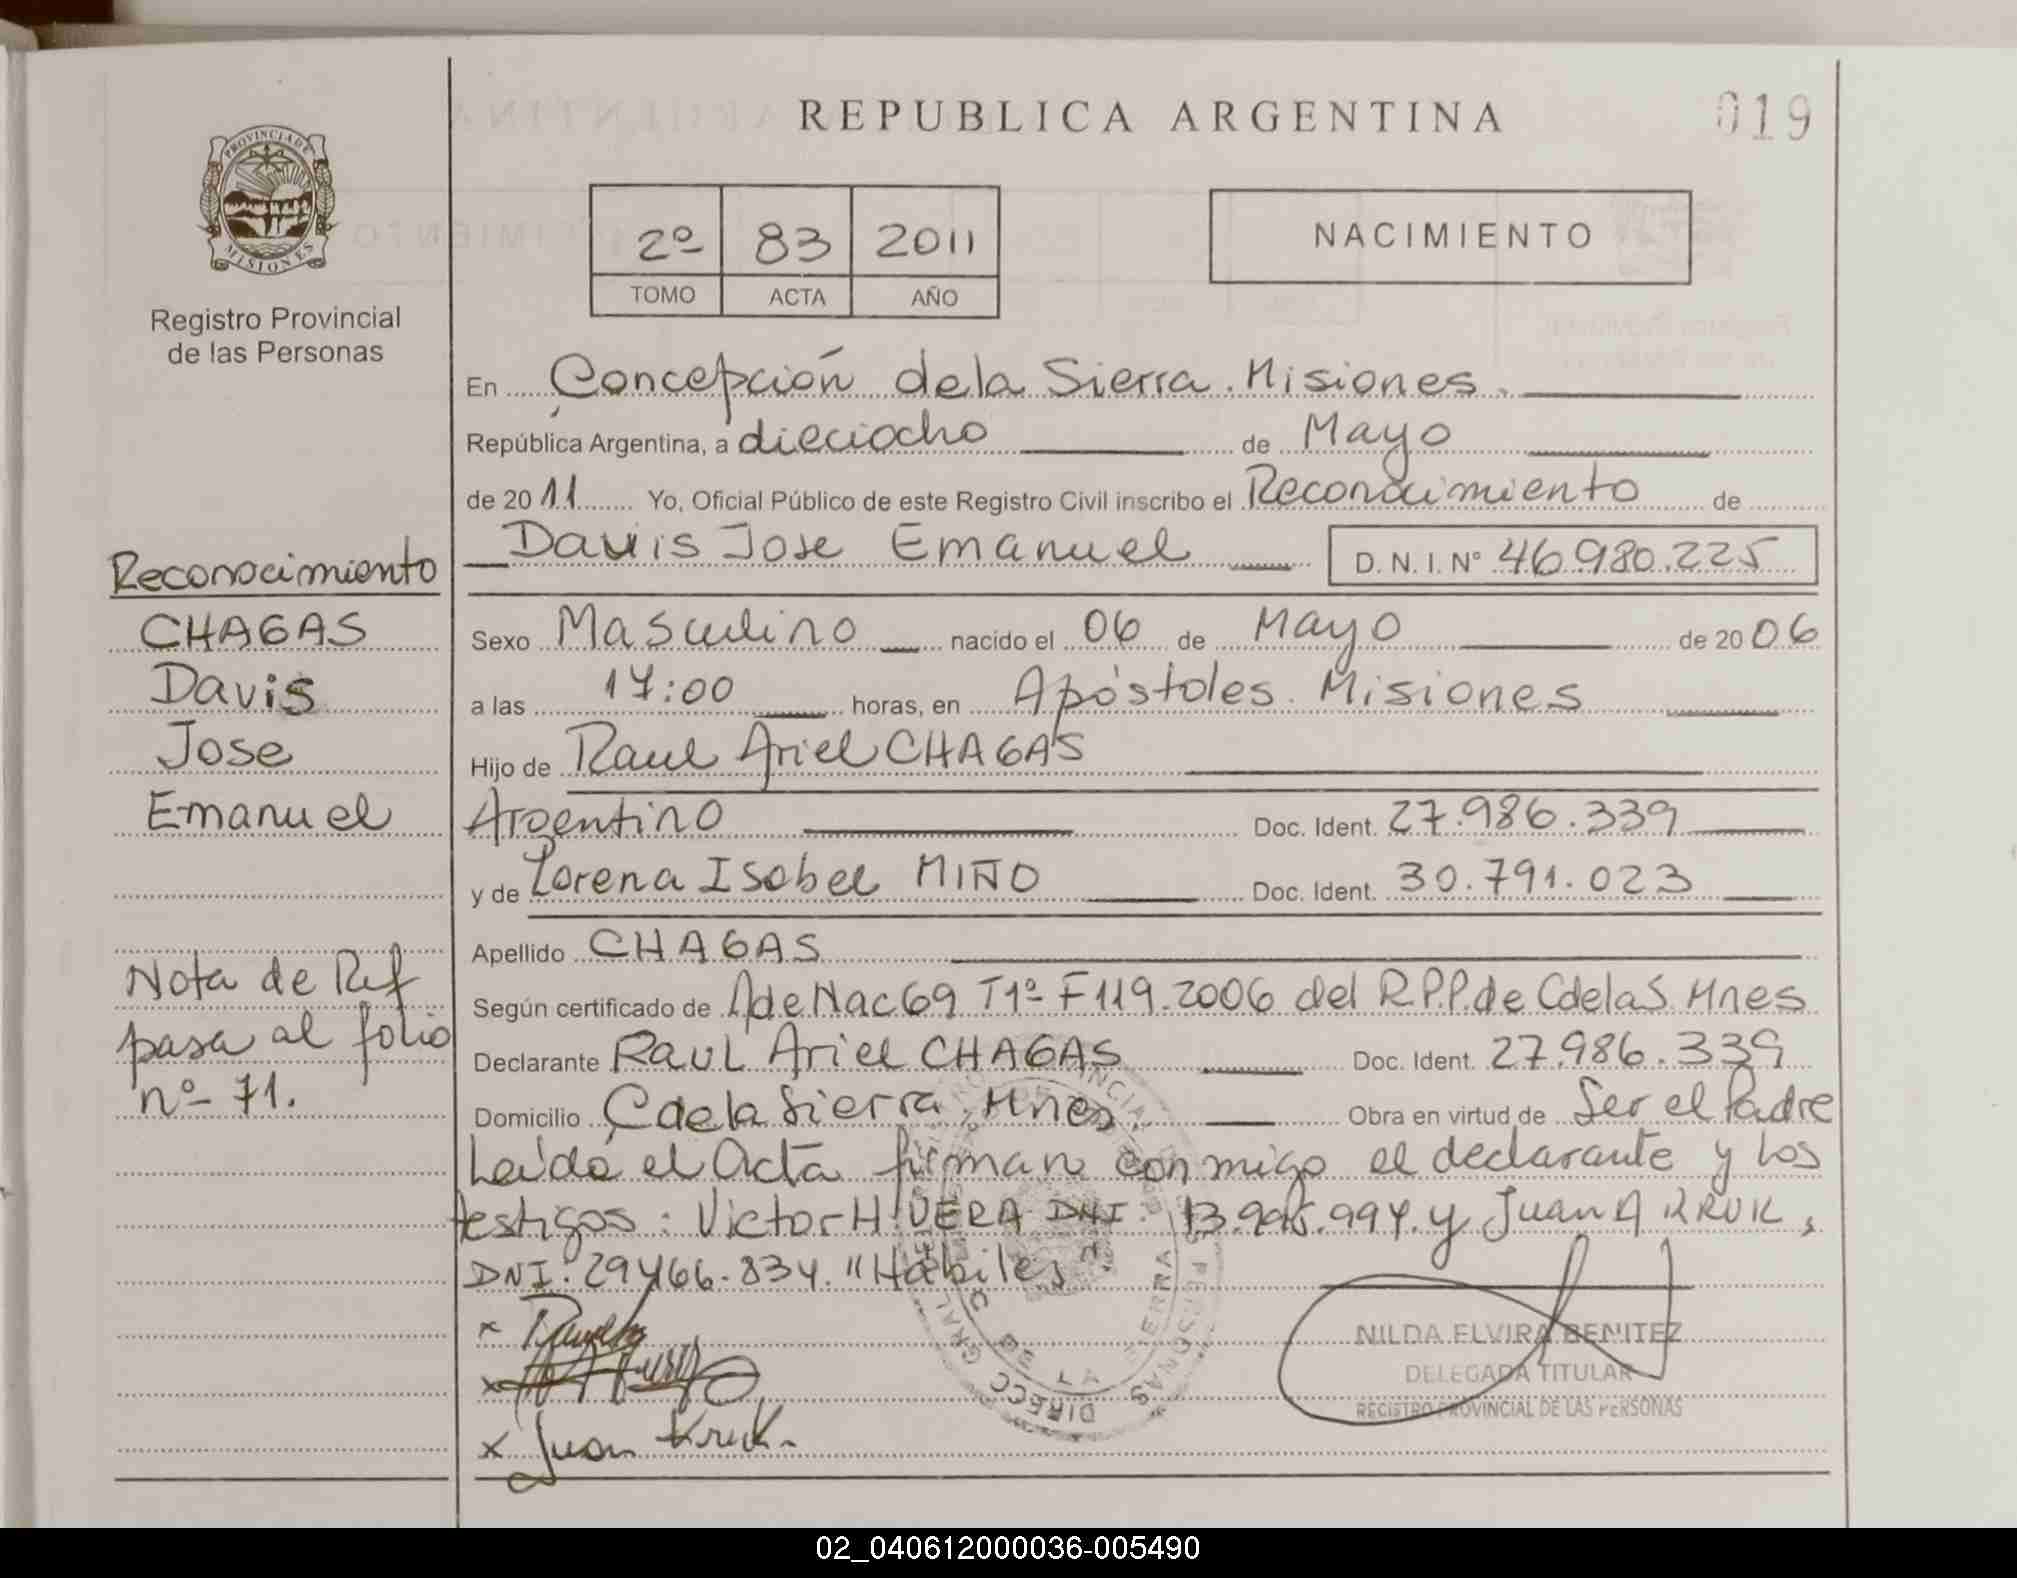 REPUBLICA ARGENTINA
019
PROVINCIA DE MISIONES
Registro Provincial
de las Personas
2º 83 2011
TOMO ACTA AÑO
NACIMIENTO
En Concepción de la Sierra. Misiones.
República Argentina, a dieciocho de Mayo
de 2011 Yo, Oficial Público de este Registro Civil inscribo el Reconocimiento de
Davis Jose Emanuel D.N.I. Nº 46.980.225
Sexo Masculino nacido el 06 de Mayo de 2006
a las 17:00 horas, en Apóstoles. Misiones
Hijo de Raul Ariel CHAGAS
Argentino Doc. Ident. 27.986.339
y de Lorena Isabel MIÑO Doc. Ident. 30.791.023
Apellido CHAGAS
Según certificado de A de Nac 69 T1º F119.2006 del R.P.P. de C de la S. Mnes
Declarante RAUL Ariel CHAGAS Doc. Ident. 27.986.339
Domicilio C de la Sierra, Mnes. Obra en virtud de Ser el Padre
Leída el Acta firman conmigo el declarante y los
testigos: Victor H. VERA DNI. y Juan A KRUK,
DNI: 29.466.834. "Hábiles"
x
x
x Juan Kruk.
NILDA ELVIRA BENITEZ
DELEGADA TITULAR
REGISTRO PROVINCIAL DE LAS PERSONAS
Reconocimiento
CHAGAS
Davis
Jose
Emanuel
Nota de Ref
pasa al folio
nº 71.
02_040612000036-005490